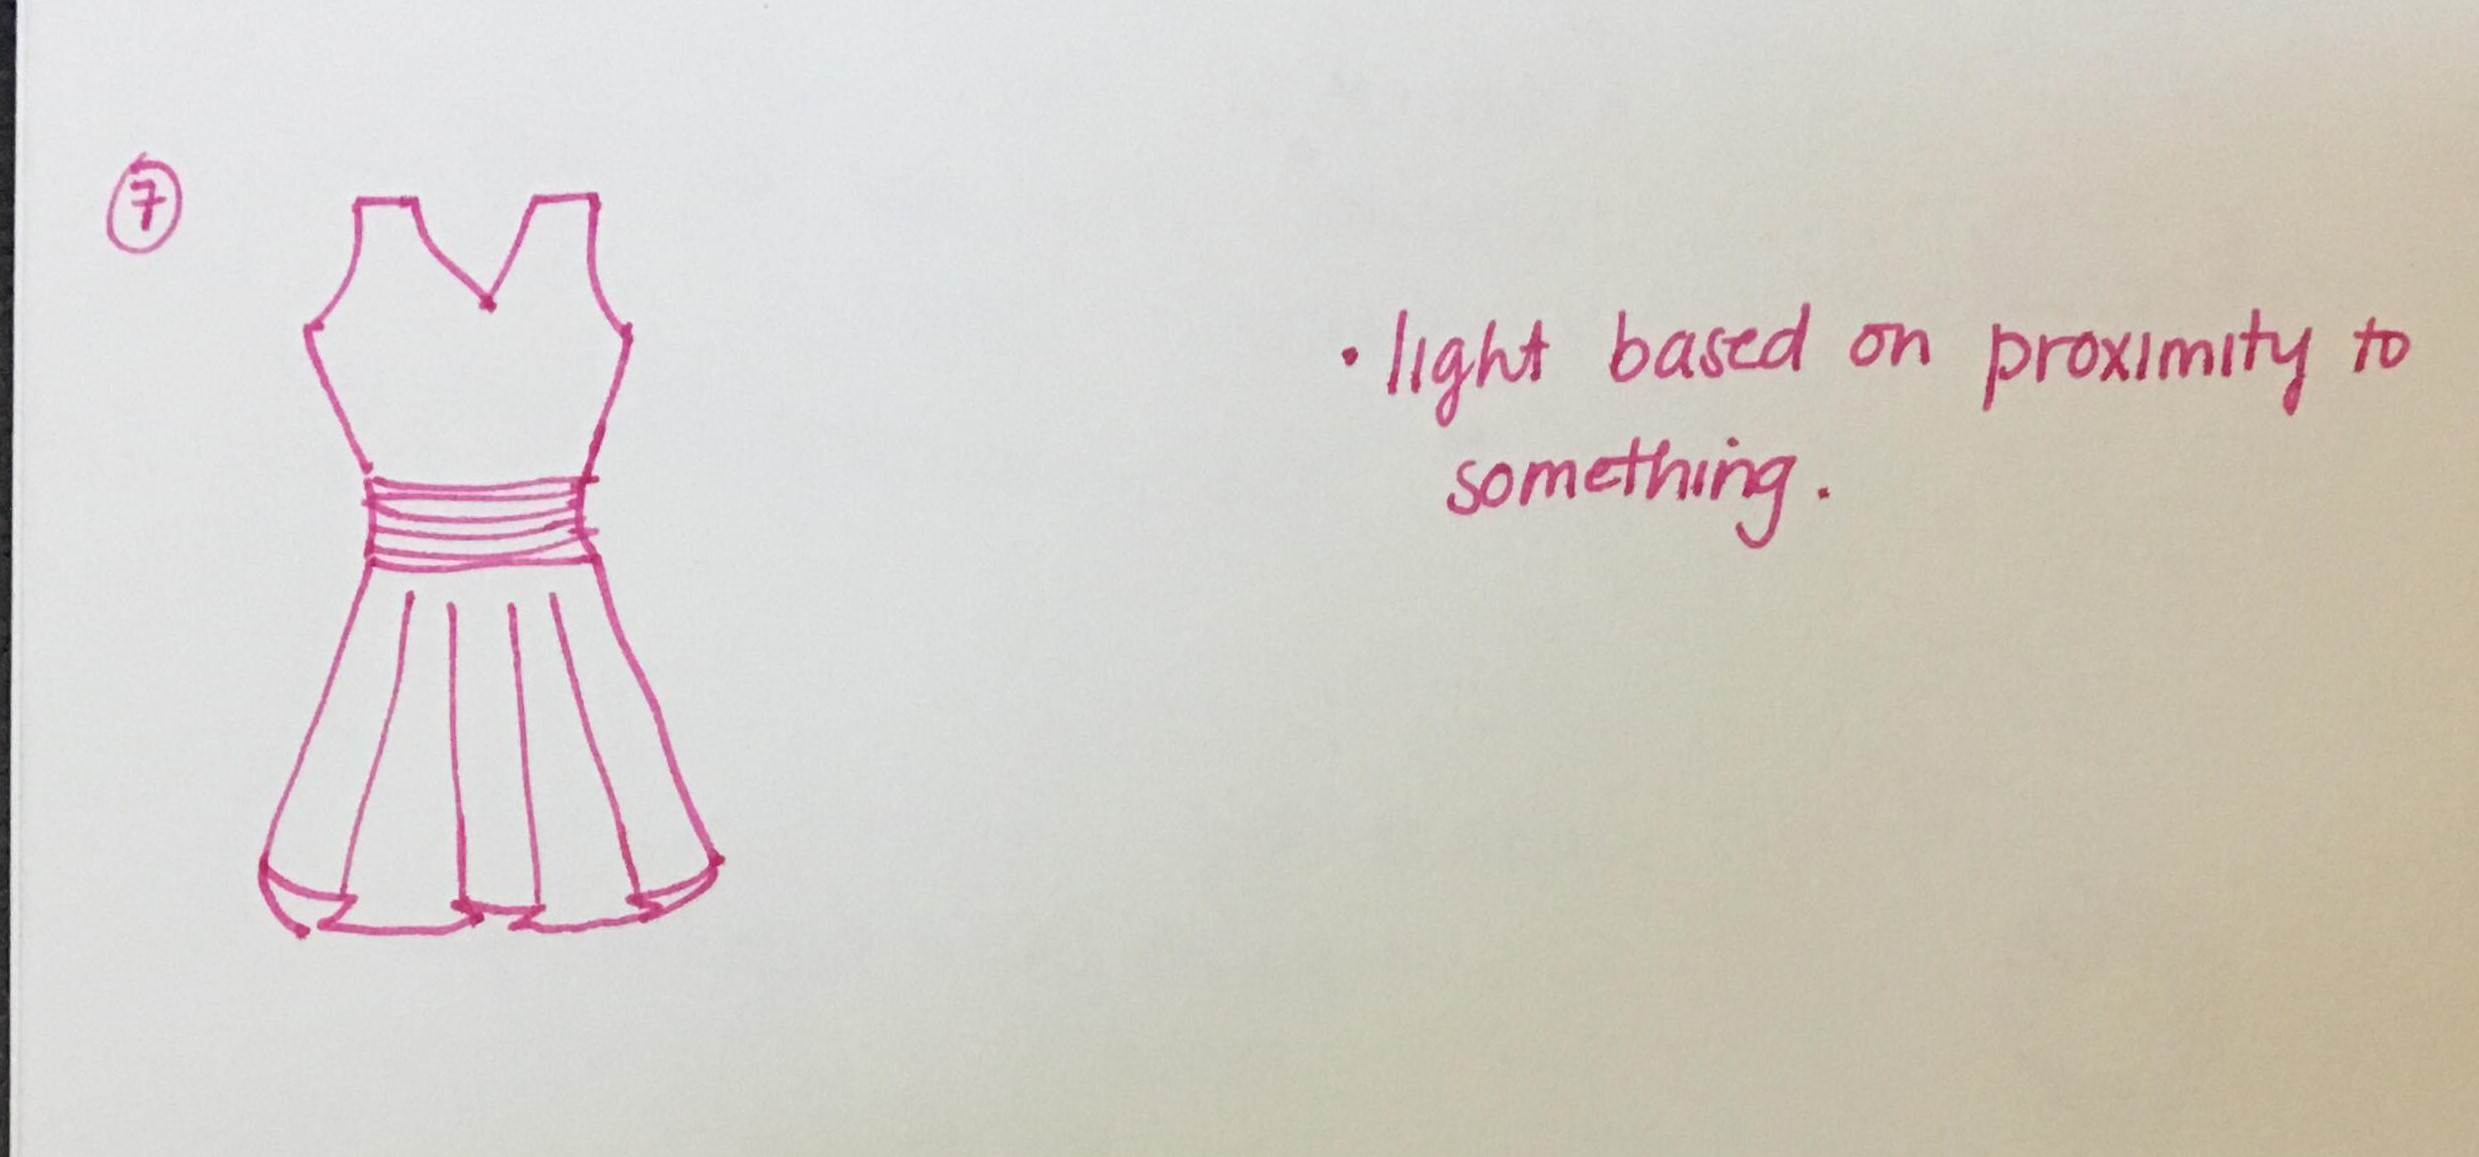 7
• light based on proximity to
something.